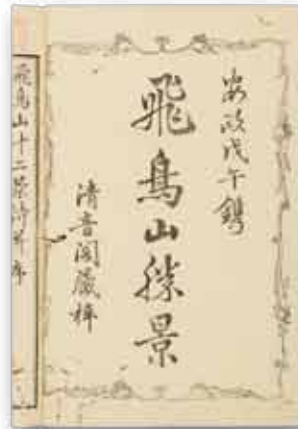 安政戊午鐫
飛鳥山勝景
清音閣蔵梓
飛鳥山十二景詩哥序